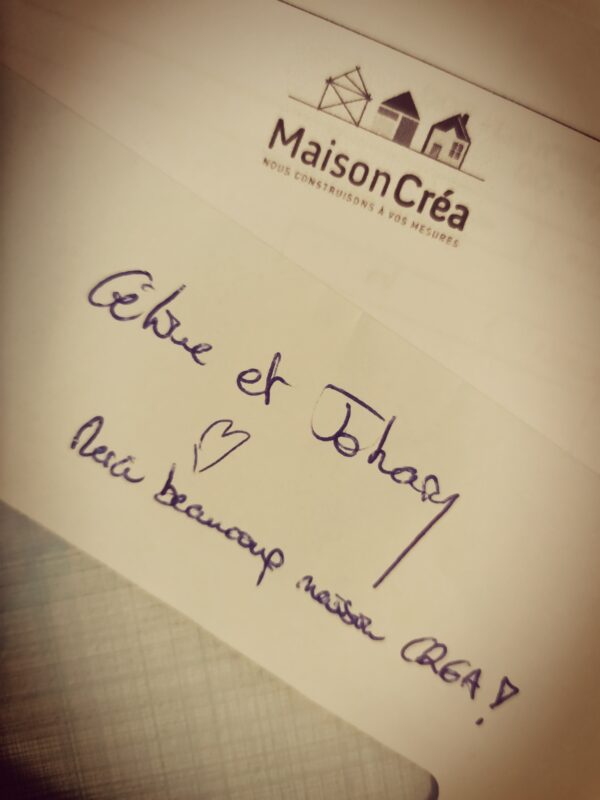 MaisonCréa
NOUS CONSTRUISONS À VOS MESURES
Céline et Johary
Merci beaucoup maison CREA !